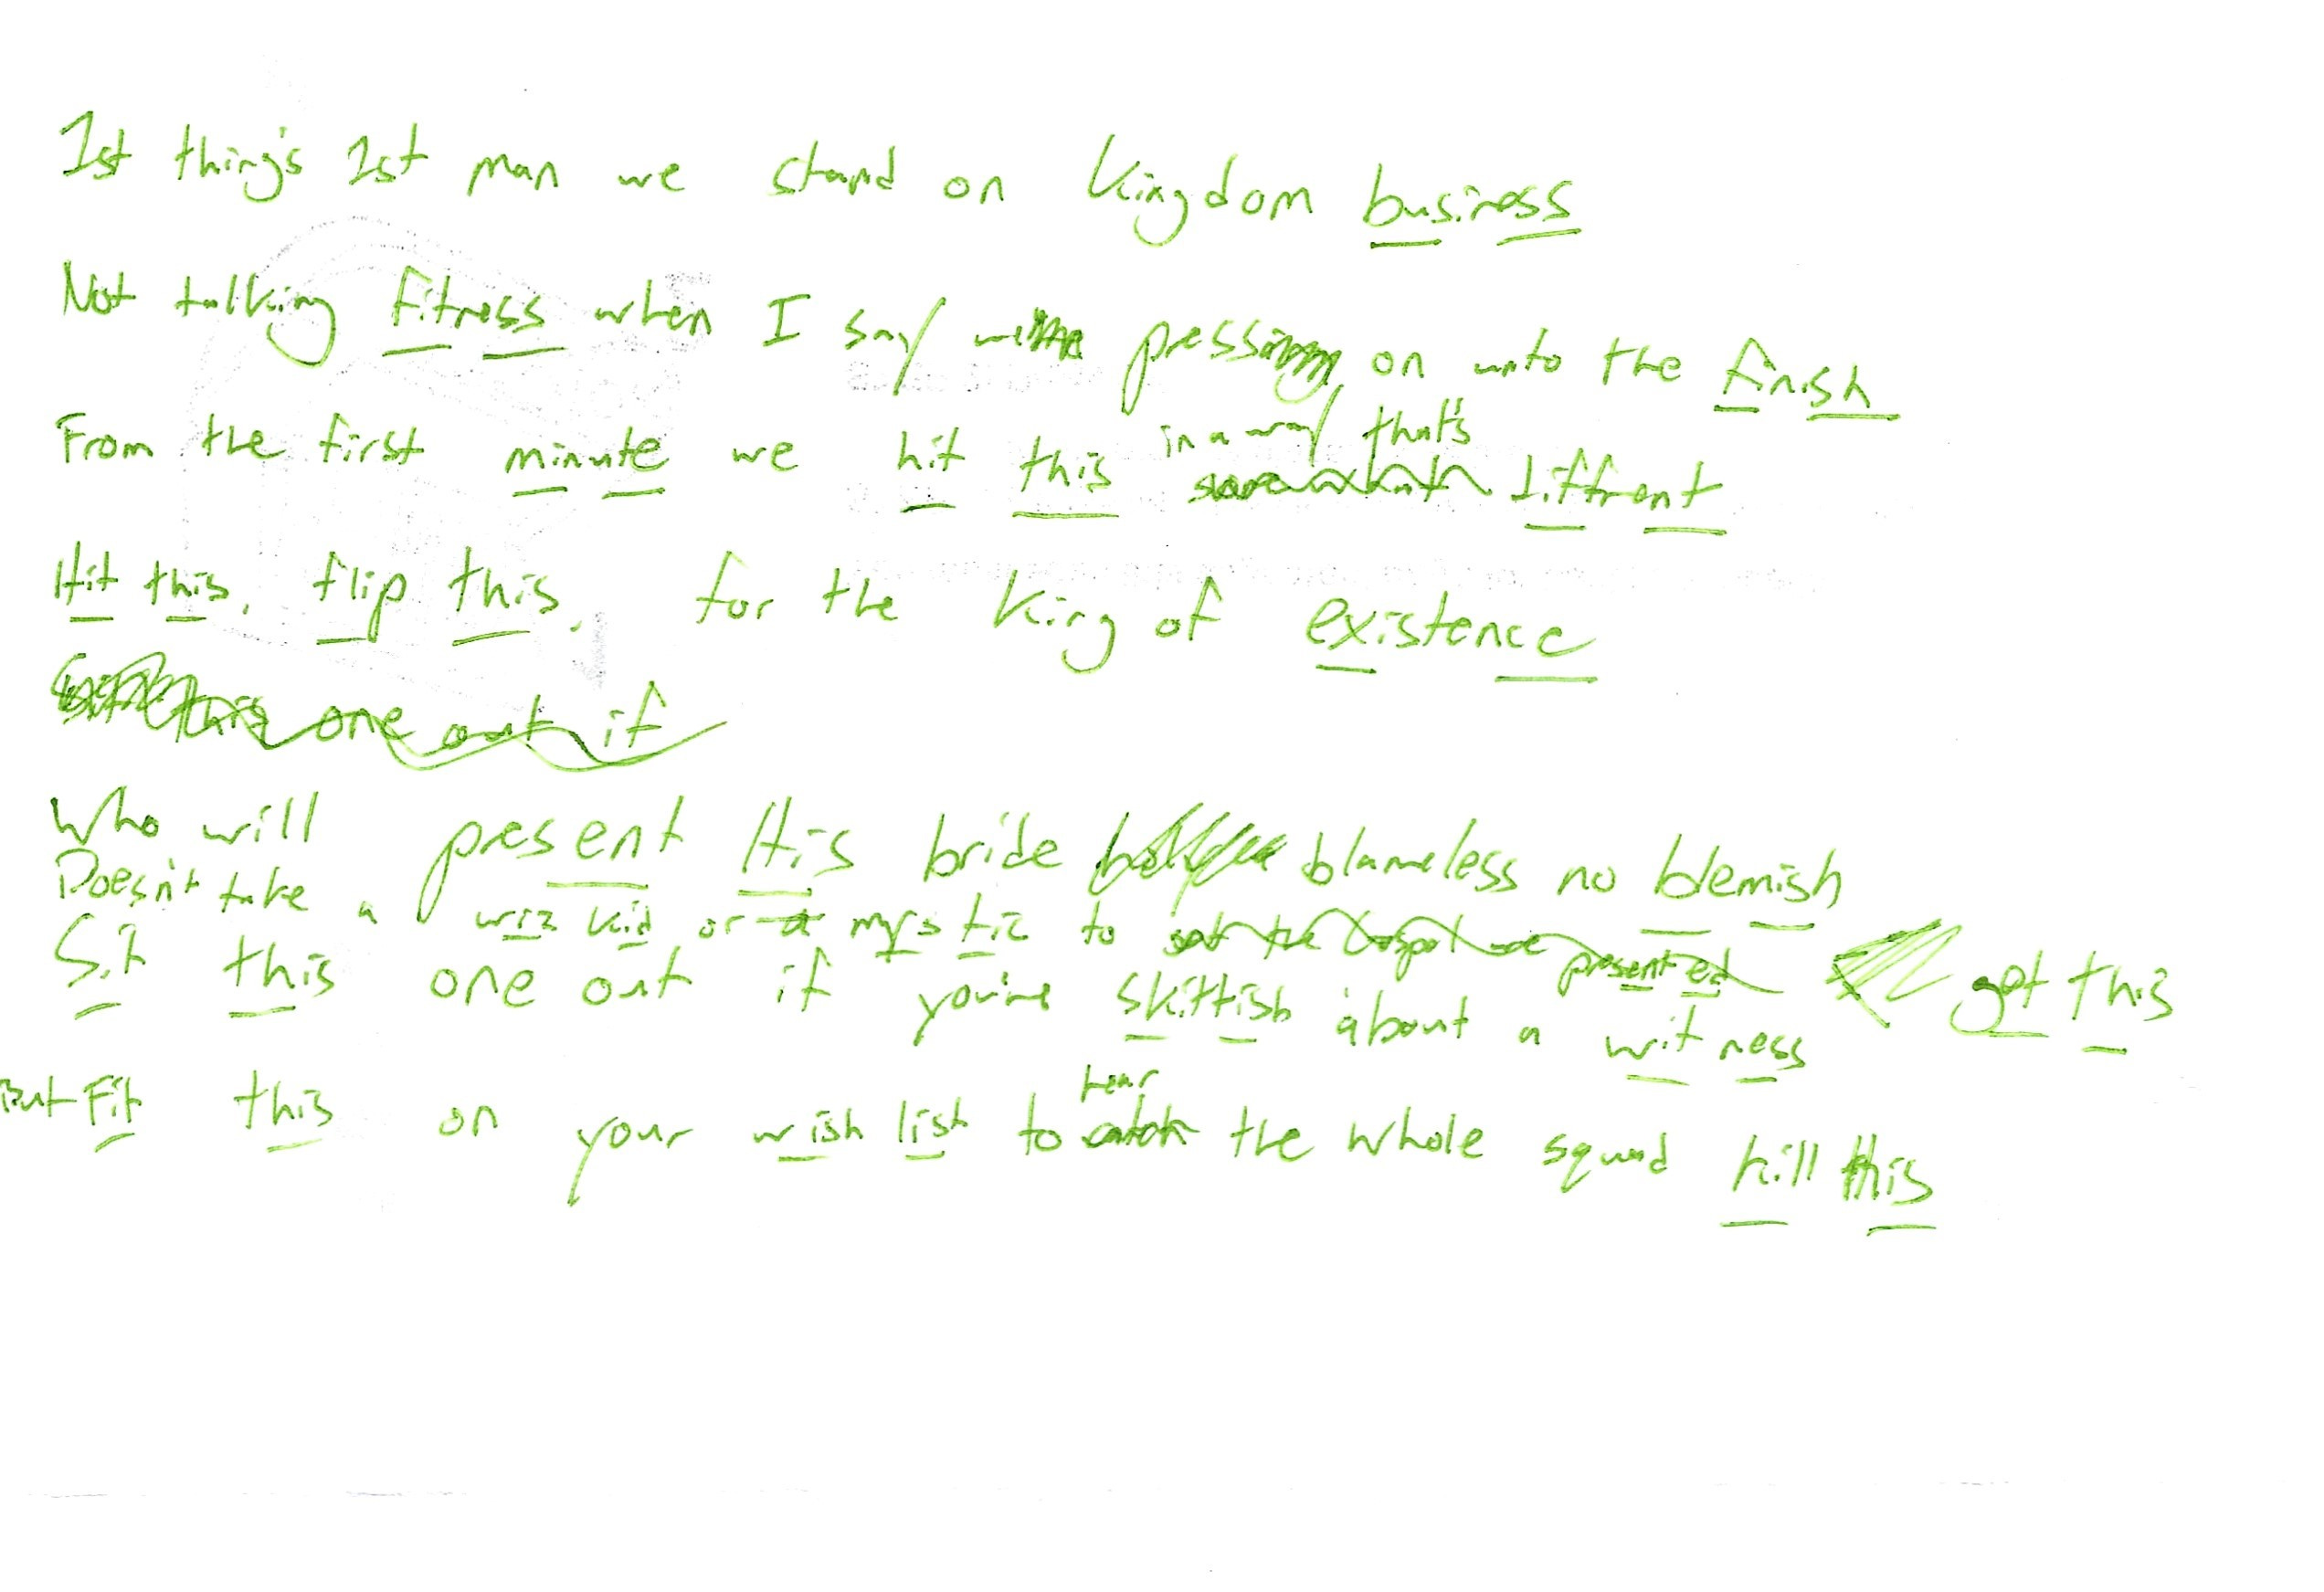 1st thing's 1st man we stand on Kingdom business
Not talking fitness when I say we press on unto the finish
From the first minute we hit this in a way that's diffrent
Hit this, flip this, for the King of existence
this one out if
Who will present His bride blameless no blemish
Doesn't take a wiz kid or a mystic to get this
Sit this one out if you're skittish about a witness
But Fit this on your wish list to hear the whole squad kill this